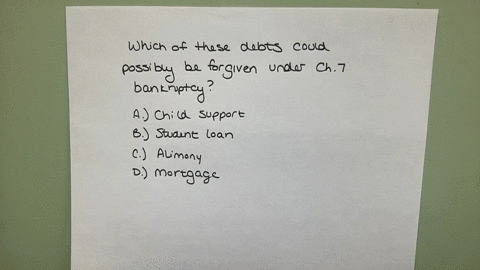 Which of these debts could
possibly be forgiven under Ch.7
bankruptcy?
A.) Child Support
B.) Student loan
C.) Alimony
D.) Mortgage